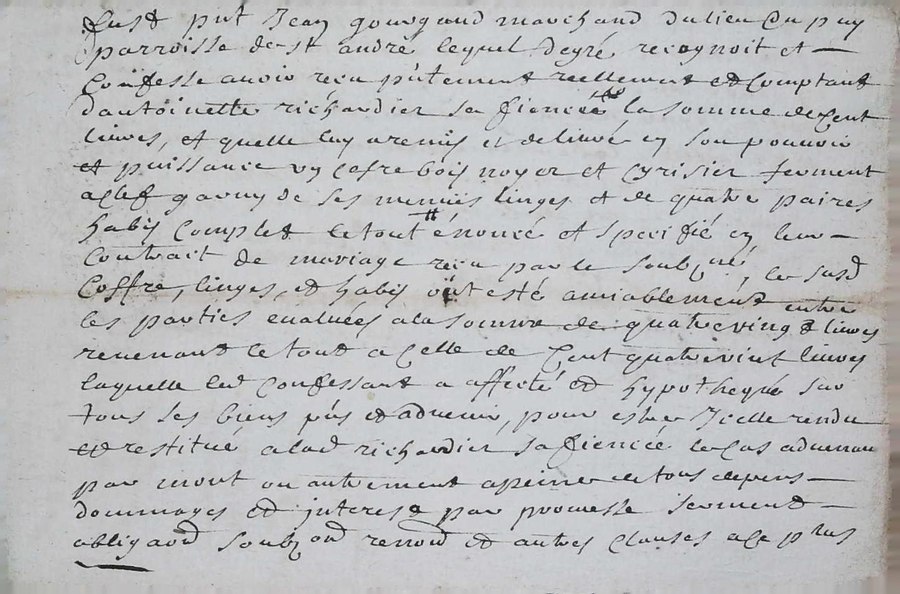 fust pnt Jean gourgaud marchand du lieu du puy
parroisse de st andré lequel degré recognoit et
Confesse avoir receu pntement reellement et Comptant
dantoinette richardier sa fiencée la somme de Cent
livres, et quelle luy a remis et delivré en son pouvoir
et puissance un Cofre bois noyer et Cyrisier fermant
a Clef garny de ses menus linges et de quatre paires
habis Complet le tout énoncé et speciffié en leur
Contrait de mariage receu par le soubzné, les susd
Coffre, linges, et habis ont esté amiablement entre
les parties evaluées a la somme de quatrevingt livres
revenant le tout a Celle de Cent quatrevint livres
laquelle led Confessant a affecté et hypothequé sur
tous ses biens pns et advenir, pour estre Icelle rendu
et restitué a lad richardier sa fiencée le Cas advenan
par mort ou autrement a peine de tous depens
dommages et interest par promesse serment
obligaon soubzon renon et autres clauses a Ce plus